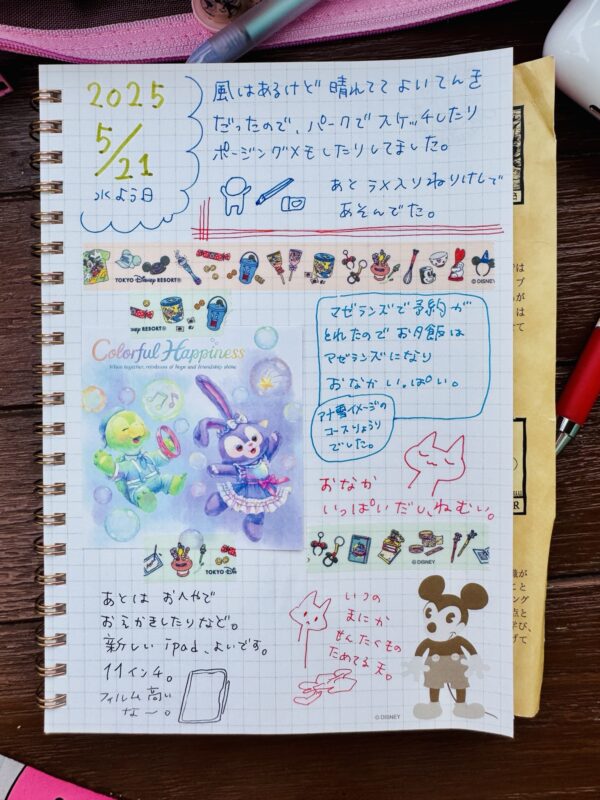 2025
5/21
水よう日
風はあるけど晴れててよいてんき
だったので、パークでスケッチしたり
ポージングメモしたりしてました。
あとラメ入りねりけしで
あそんでた。
TOKYO Disney RESORT®
©DISNEY
マゼランズで予約が
とれたのでお夕飯は
マゼランズになり
おなかいっぱい。
アナ雪イメージの
コースりょうり
でした。
Colorful Happiness
When together, rainbows of hope and friendship shine
おなか
いっぱいだし、ねむい。
TOKYO Dis
©DISNEY
あとはおへやで
おえかきしたりなど。
新しいipad、よいです。
11インチ。
フィルム高い
なー。
いつの
まにか
せんたくもの
ためてる天。
©DISNEY